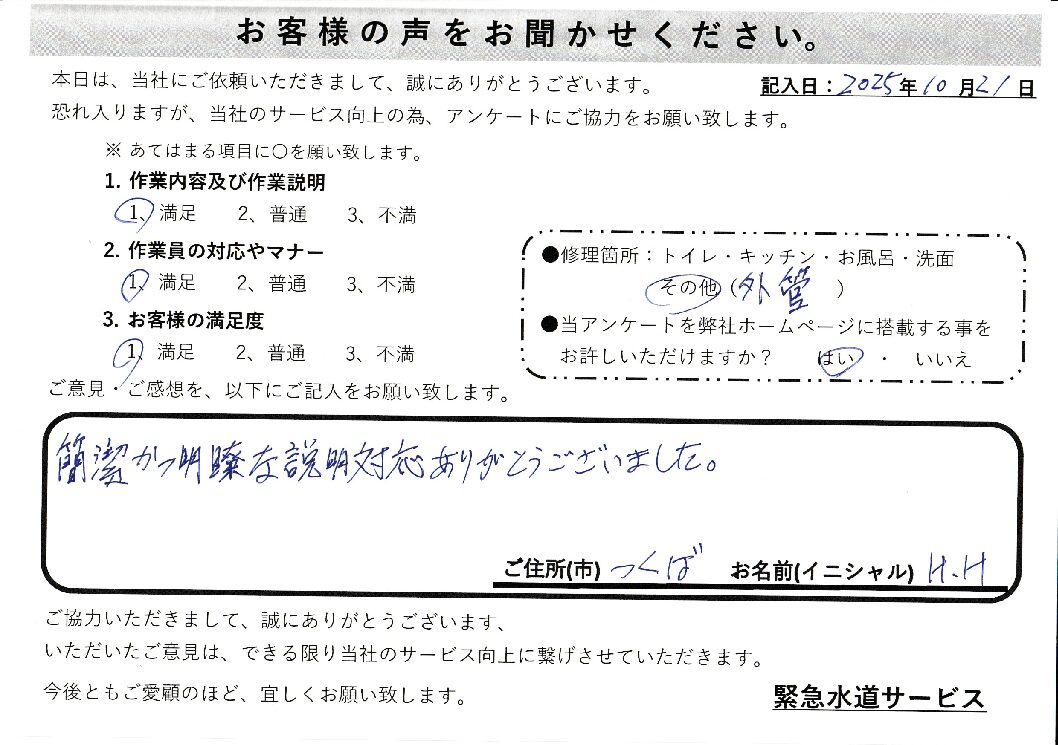 お客様の声をお聞かせください。
本日は、当社にご依頼いただきまして、誠にありがとうございます。
記入日：2025年10月21日
恐れ入りますが、当社のサービス向上の為、アンケートにご協力をお願い致します。
※ あてはまる項目に〇を願い致します。
1. 作業内容及び作業説明
1、満足 2、普通 3、不満
2. 作業員の対応やマナー
1、満足 2、普通 3、不満
3. お客様の満足度
1、満足 2、普通 3、不満
●修理箇所：トイレ・キッチン・お風呂・洗面
その他（外管）
●当アンケートを弊社ホームページに搭載する事を
お許しいただけますか？ はい ・ いいえ
ご意見・ご感想を、以下にご記入をお願い致します。
簡潔かつ明瞭な説明対応ありがとうございました。
ご住所(市) つくば お名前(イニシャル) H.H
ご協力いただきまして、誠にありがとうございます、
いただいたご意見は、できる限り当社のサービス向上に繋げさせていただきます。
今後ともご愛顧のほど、宜しくお願い致します。
緊急水道サービス